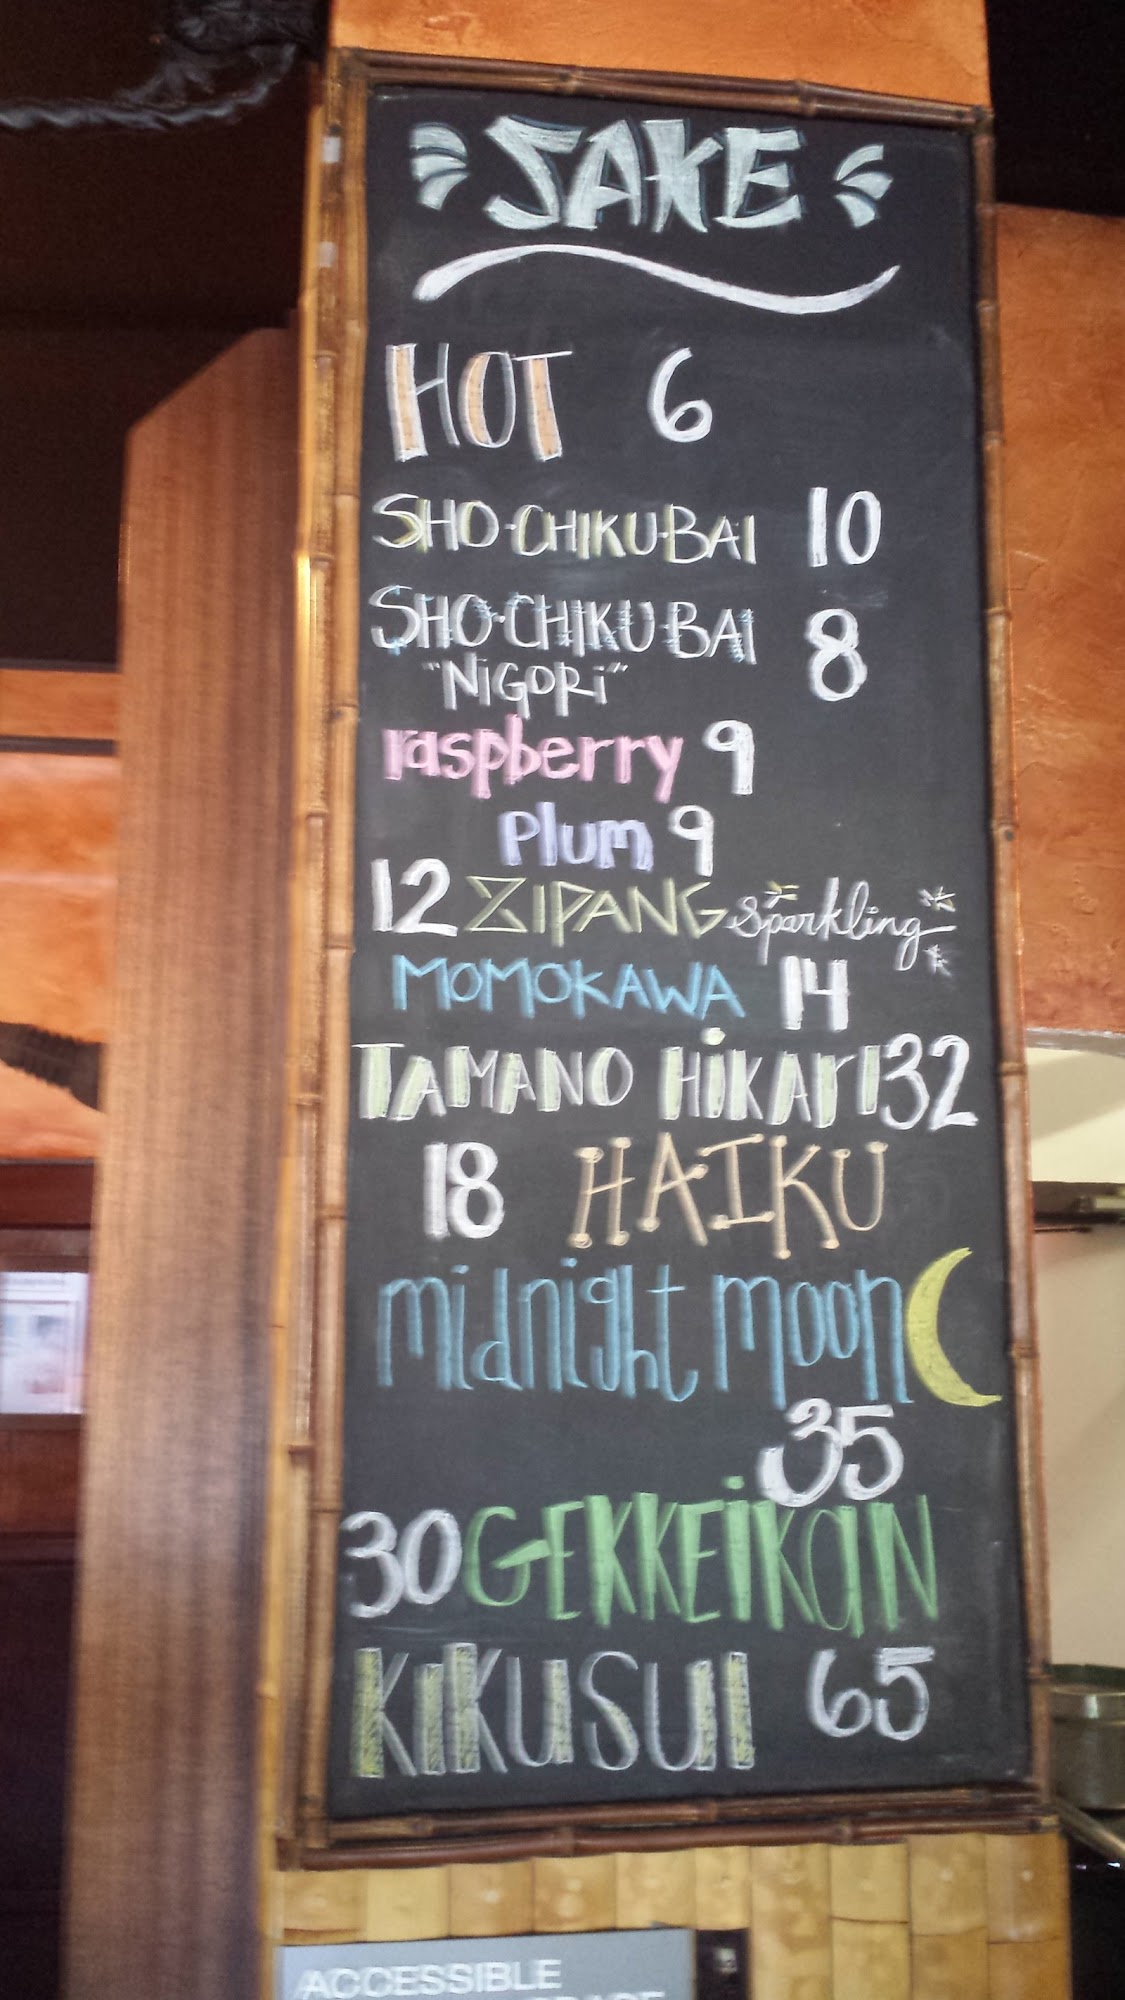 SAKE
HOT 6
SHO-CHIKU-BAI 10
SHO-CHIKU-BAI 8
"NIGORI"
raspberry 9
Plum 9
12 ZIPANG sparkling
MOMOKAWA 14
TAMANO HIKARI 32
18 HAIKU
midnight moon
35
30 GEKKEIKAN
KIKUSUI 65
ACCESSIBLE